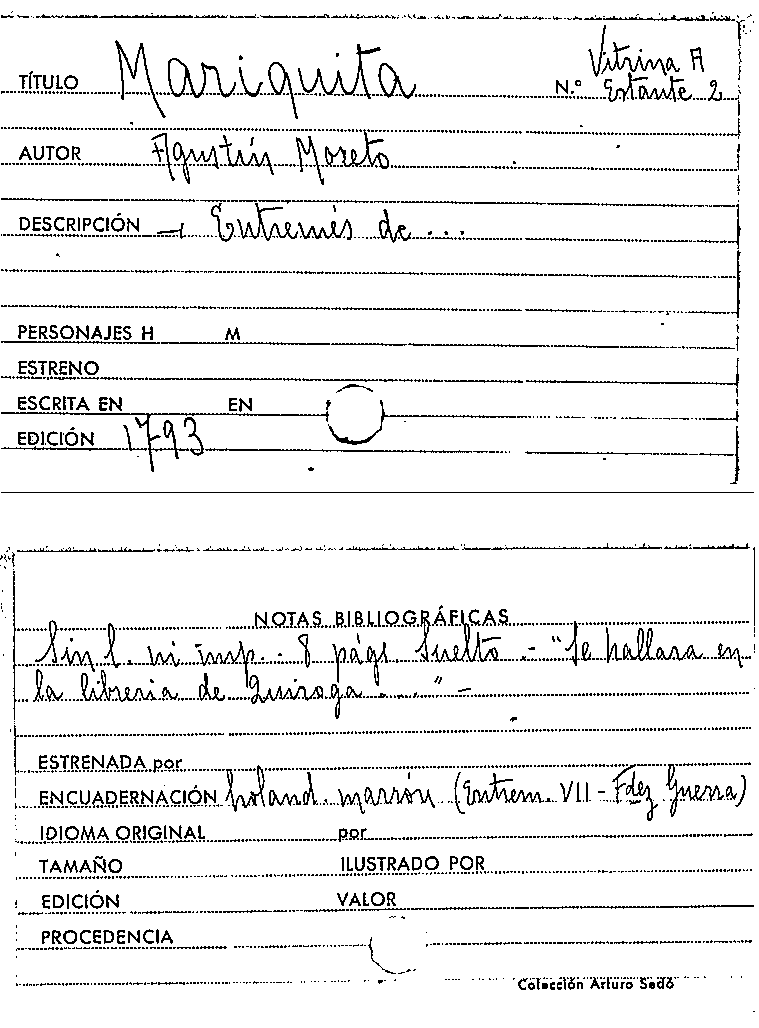 Vitrina A
TÍTULO Mariquita N.º Estante 2
AUTOR Agustín Moreto
DESCRIPCIÓN → Entremés de ...
PERSONAJES H M
ESTRENO
ESCRITA EN EN
EDICIÓN 1793
NOTAS BIBLIOGRÁFICAS
Sin l. ni imp. - 8 págs. Suelto. - "Se hallara en
la libreria de Quiroga ...." -
ESTRENADA por
ENCUADERNACIÓN holand. marrón (Entrem. VII - Fdez Guerra)
IDIOMA ORIGINAL por
TAMAÑO ILUSTRADO POR
EDICIÓN VALOR
PROCEDENCIA
Colección Arturo Sedó